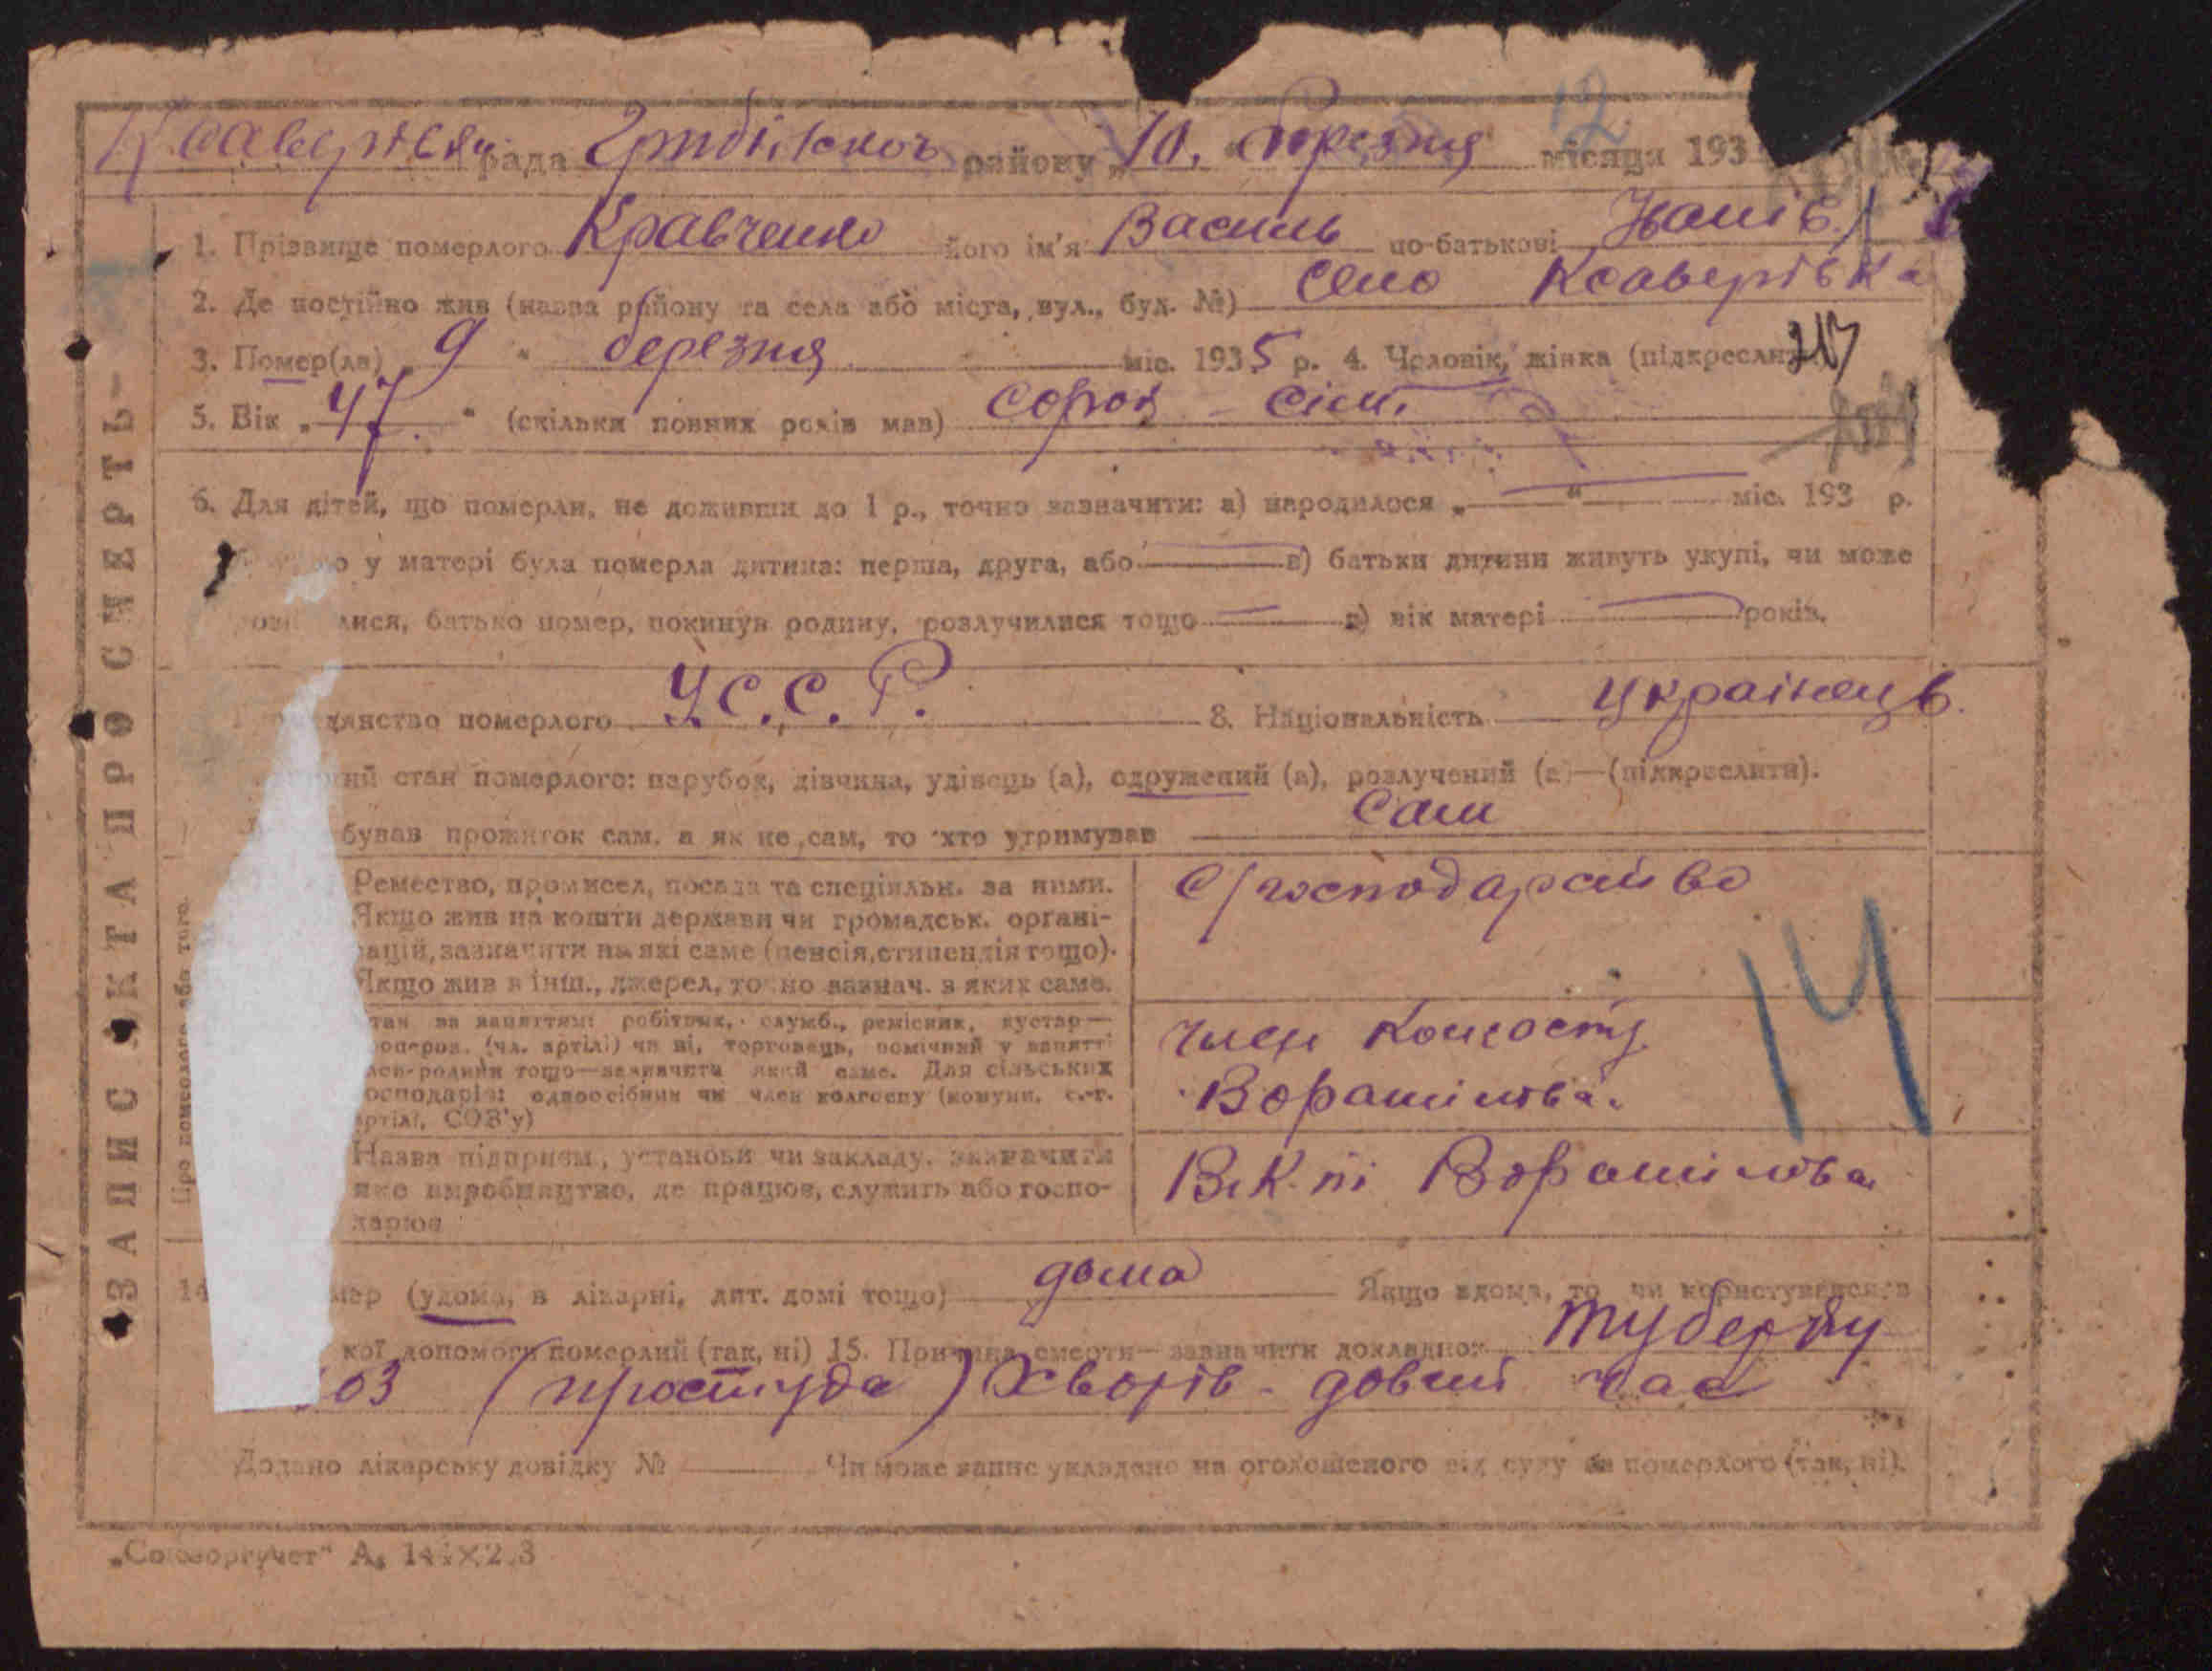 Ксаверівк рада района „10." березня місяця 193
1. Прізвище померлого Кравченко його ім'я Василь по-батькові Іванів.
2. Де постійно жив (назва району та села або міста, вул., буд. №) село Ксаверівка
3. Помер(ла) „9" березня міс. 1935 р. 4. Чоловік, жінка (підкреслити)
5. Вік „47." (скільки повних років мав) сорок – сім.
6. Для дітей, що померли, не доживши до 1 р., точно зазначити: а) народилося „ " міс. 193 р.
у матері була померла дитина: перша, друга, або в) батьки дитини живуть укупі, чи може
лися, батько помер, покинув родину, розлучилися тощо г) вік матері років.
померлого У.С.С.Р. 8. Національність українець.
стан померлого: парубок, дівчина, удівець (а), одружений (а), розлучений (а)—(підкреслити).
бував прожиток сам, а як не сам, то хто утримував сам
Ремество, промисел, посада та спеціальн. за ними.
Якщо жив на кошти держави чи громадськ. органі-
зацій, зазначити на які саме (пенсія, стипендія тощо).
Якщо жив з інш., джерел, точно зазнач. з яких саме.
с/господарство
Стан за заняттям: робітник, службв., ремісник, кустар—
(чл. артілі) чи ні, торговець, помічний у занятті
член-родини тощо—зазначити який саме. Для сільських
господарів: одноосібник чи член колгоспу (комуни, с.-г.
артілі, СОЗ'у)
член
Ворашилова.
14
Назва підприєм., установи чи закладу, зазначити
яке виробництво, де працює, служить або госпо-
дарює
Ворошилова
14 мер (удома, в лікарні, дит. домі тощо) дома Якщо вдома, то чи користувався
кої допомоги померлий (так, ні) 15. Причина смерти—зазначити докладно: туберку
оз (простуда) Хворів – довгий час
Додано лікарську довідку № Чи може запис укладено на оголошеного від суду за померлого (так, ні).
„Союзоргучет"
ЗАПИС АКТА ПРО СМЕРТЬ
Про померлого або того.